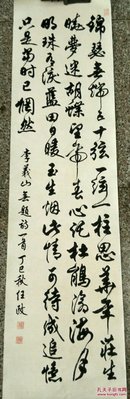 錦瑟無端五十弦一弦一柱思華年莊生
曉夢迷胡蝶望帝春心託杜鵑滄海月
明珠有淚藍田日暖玉生煙此情可待成追憶
只是當時已惘然
李義山無題詩一首 丁巳秋任政